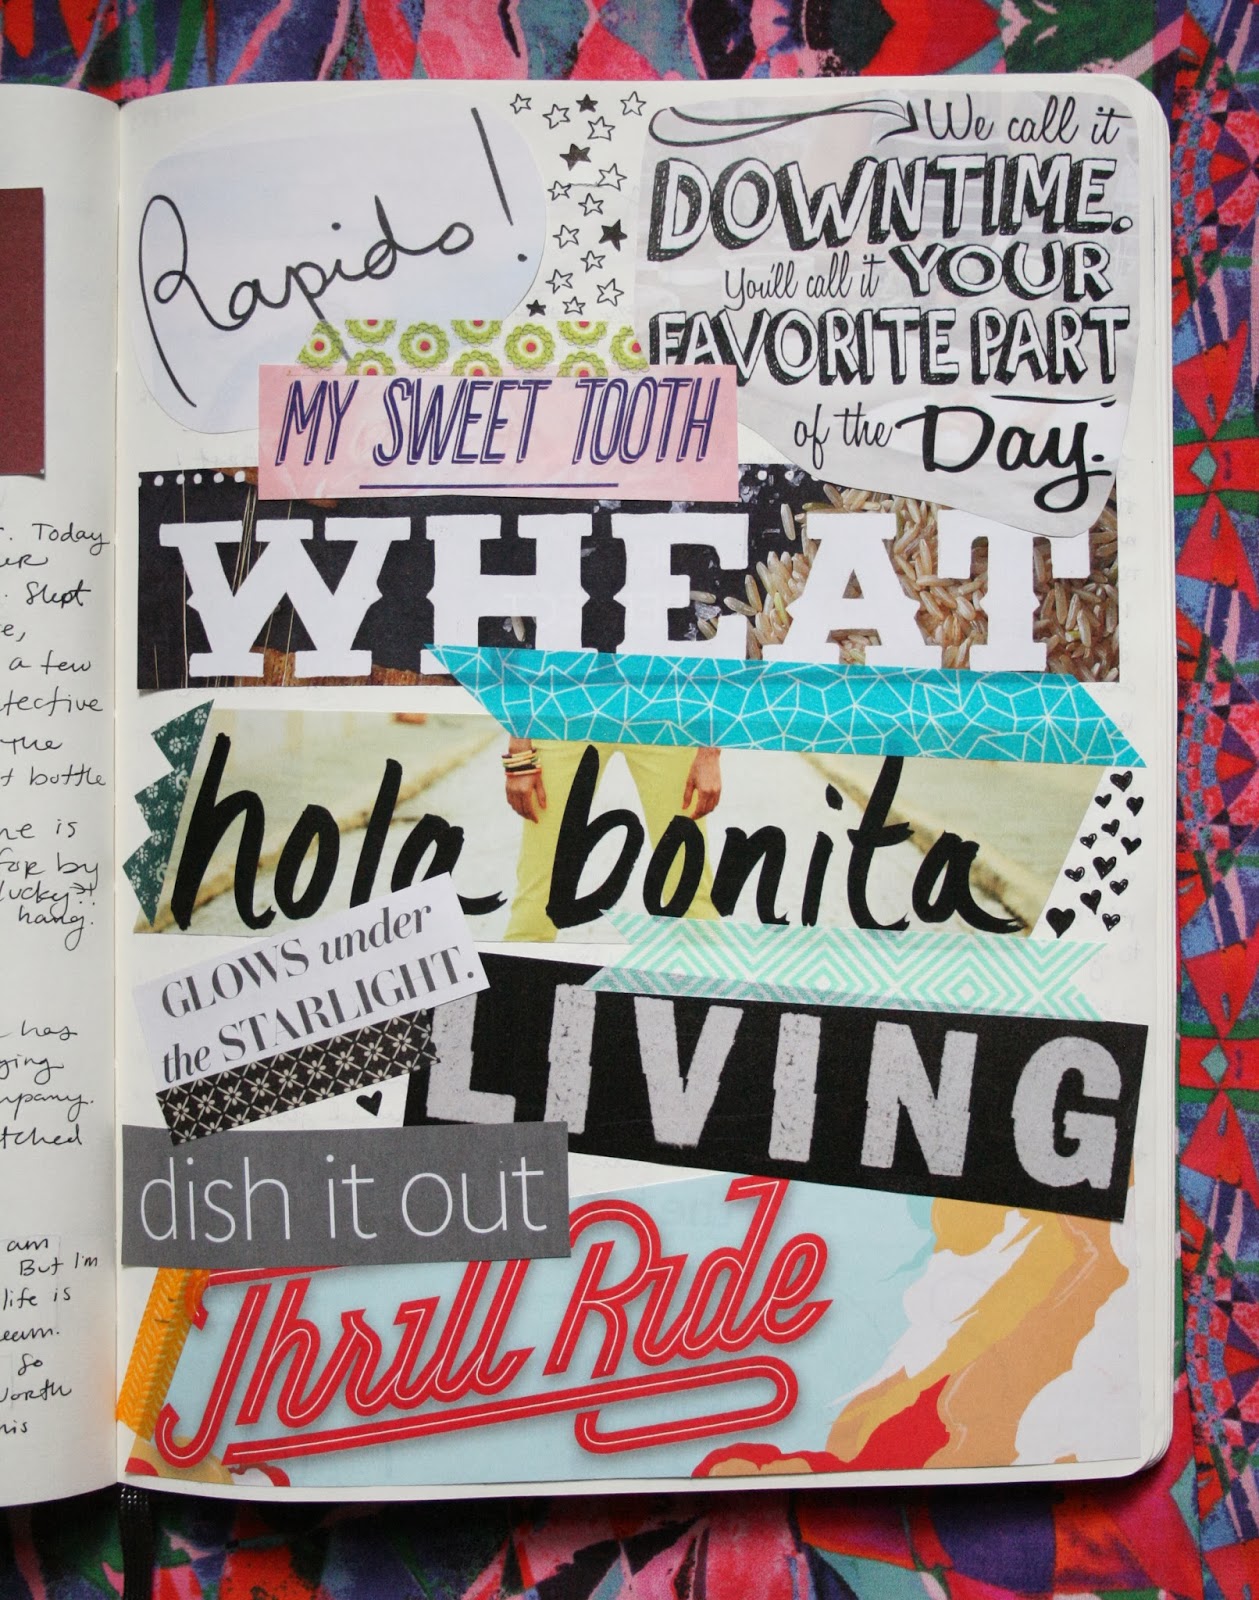 Rapido!
We call it
DOWNTIME.
You'll call it YOUR
FAVORITE PART
of the Day.
MY SWEET TOOTH
WHEAT
hola bonita
GLOWS under
the STARLIGHT.
LIVING
dish it out
Thrill Ride
Today
Slept
a few
The
bottle
is
for by
lucky?!
hang.
has
am
But I'm
life is
So